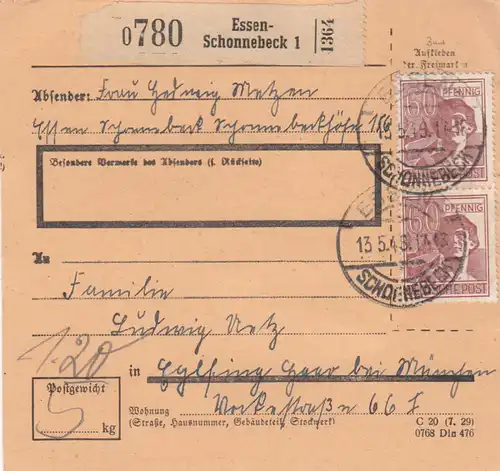 0780 Essen-
Schonnebeck 1 1364
Zum
Aufkleben
der Freimarken
Absender: Frau Hedwig Metzen
Essen Schonnebeck Schonnebeckhöfe
Besondere Vermerke des Absenders (s. Rückseite)
60 PFENNIG
60 PFENNIG
SCHONNEBECK
13.5.48.
SCHONNEBECK
An
Familie
Ludwig Netz
1.20
in Eglfing Haar bei München
Postgewicht
5 kg
Vockestraße 66 I
Wohnung
(Straße, Hausnummer, Gebäudeteil, Stockwerk)
C 20 (7. 29)
0768 Din 476